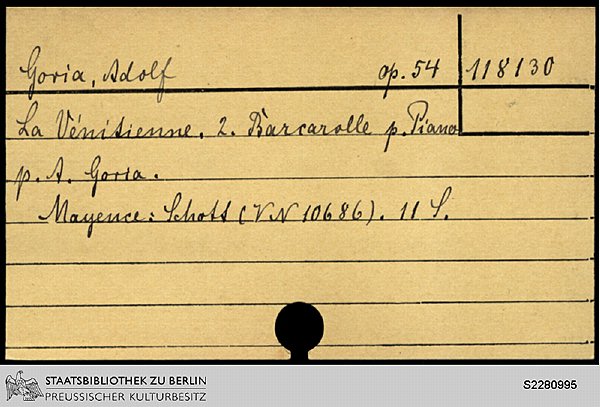 Goria, Adolf op. 54 118130
La Vénitienne. 2. Barcarolle p. Piano
p. A. Goria.
Mayence: Schott (VN 10686). 11 S.
STAATSBIBLIOTHEK ZU BERLIN
PREUSSISCHER KULTURBESITZ
S2280995